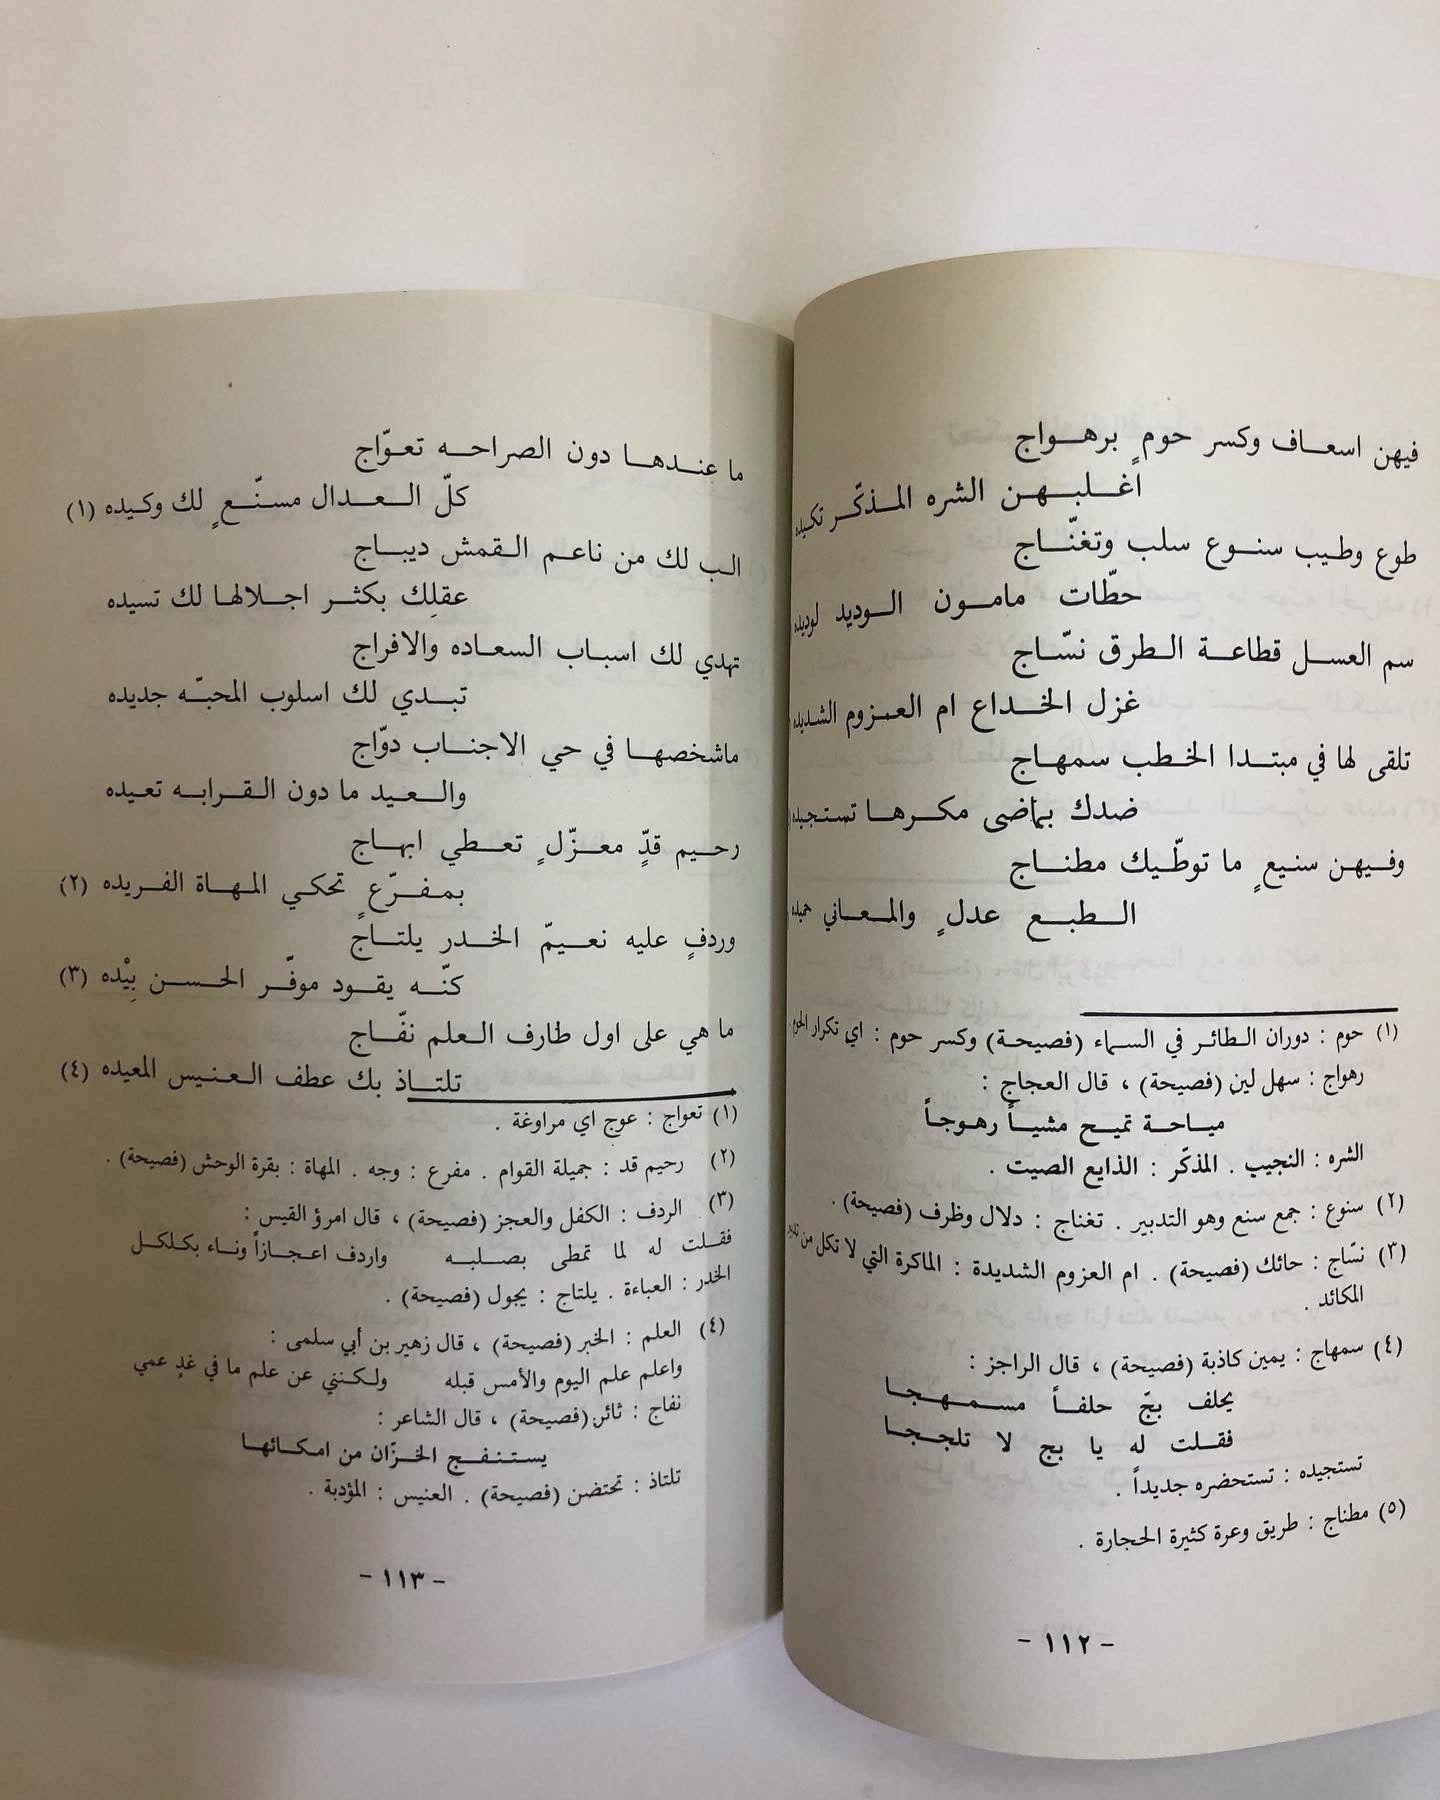 فيهن اسعاف وكسر حومٍ برهواج
اغلبهن الشره المذكّر تكيده
طوع وطيب سنوع سلب وتغنّاج
حطّات مامون الوديد لوديده
سم العسل قطاعة الطرق نسّاج
غزل الخداع ام العزوم الشديده
تلقى لها في مبتدا الخطب سمهاج
ضدك بماضى مكرها تستجيده
وفيهن سنيعٍ ما توطّيك مطناج
الطبع عدلٍ والمعاني حميده
(١) حوم : دوران الطائر في السماء (فصيحة) وكسر حوم : اي تكرار الحوم .
رهواج : سهل لين (فصيحة) ، قال العجاج :
مياحة تميح مشياً رهوجاً
الشره : النجيب . المذكّر : الذايع الصيت .
(٢) سنوع : جمع سنع وهو التدبير . تغناج : دلال وظرف (فصيحة) .
(٣) نسّاج : حائك (فصيحة) . ام العزوم الشديدة : الماكرة التي لا تكل من
المكائد .
(٤) سمهاج : يمين كاذبة (فصيحة) ، قال الراجز :
يحلف بجّ حلفاً مسمهجا
فقلت له يا بج لا تلججا
تستجيده : تستحضره جديداً .
(٥) مطناج : طريق وعرة كثيرة الحجارة .
- ١١٢ -
ما عندها دون الصراحه تعوّاج
كلّ العدال مسنّعٍ لك وكيده (١)
الب لك من ناعم القمش ديباج
عقلِك بكثر اجلالها لك تسيده
تهدي لك اسباب السعاده والافراج
تبدي لك اسلوب المحبّه جديده
ماشخصها في حي الاجناب دوّاج
والعيد ما دون القرابه تعيده
رحيم قدٍّ معزّلٍ تعطي ابهاج
بمفرّعٍ تحكي المهاة الفريده (٢)
وردفٍ عليه نعيمّ الخدر يلتاج
كنّه يقود موفّر الحسن بِيْده (٣)
ما هي على اول طارف العلم نفّاج
تلتاذ بك عطف العنيس المعيده (٤)
(١) تعواج : عوج اي مراوغة .
(٢) رحيم قد : جميلة القوام . مفرع : وجه . المهاة : بقرة الوحش (فصيحة) .
(٣) الردف : الكفل والعجز (فصيحة) ، قال امرؤ القيس :
فقلت له لما تمطى بصلبه وأردف اعجازاً وناء بكلكل
الخدر : العباءة . يلتاج : يجول (فصيحة) .
(٤) العلم : الخبر (فصيحة) ، قال زهير بن أبي سلمى :
واعلم علم اليوم والأمس قبله ولكنني عن علم ما في غدٍ عمي
نفاج : ثائر (فصيحة) ، قال الشاعر :
يستنفج الخزّان من امكائها
تلتاذ : تحتضن (فصيحة) . العنيس : المؤدبة .
- ١١٣ -